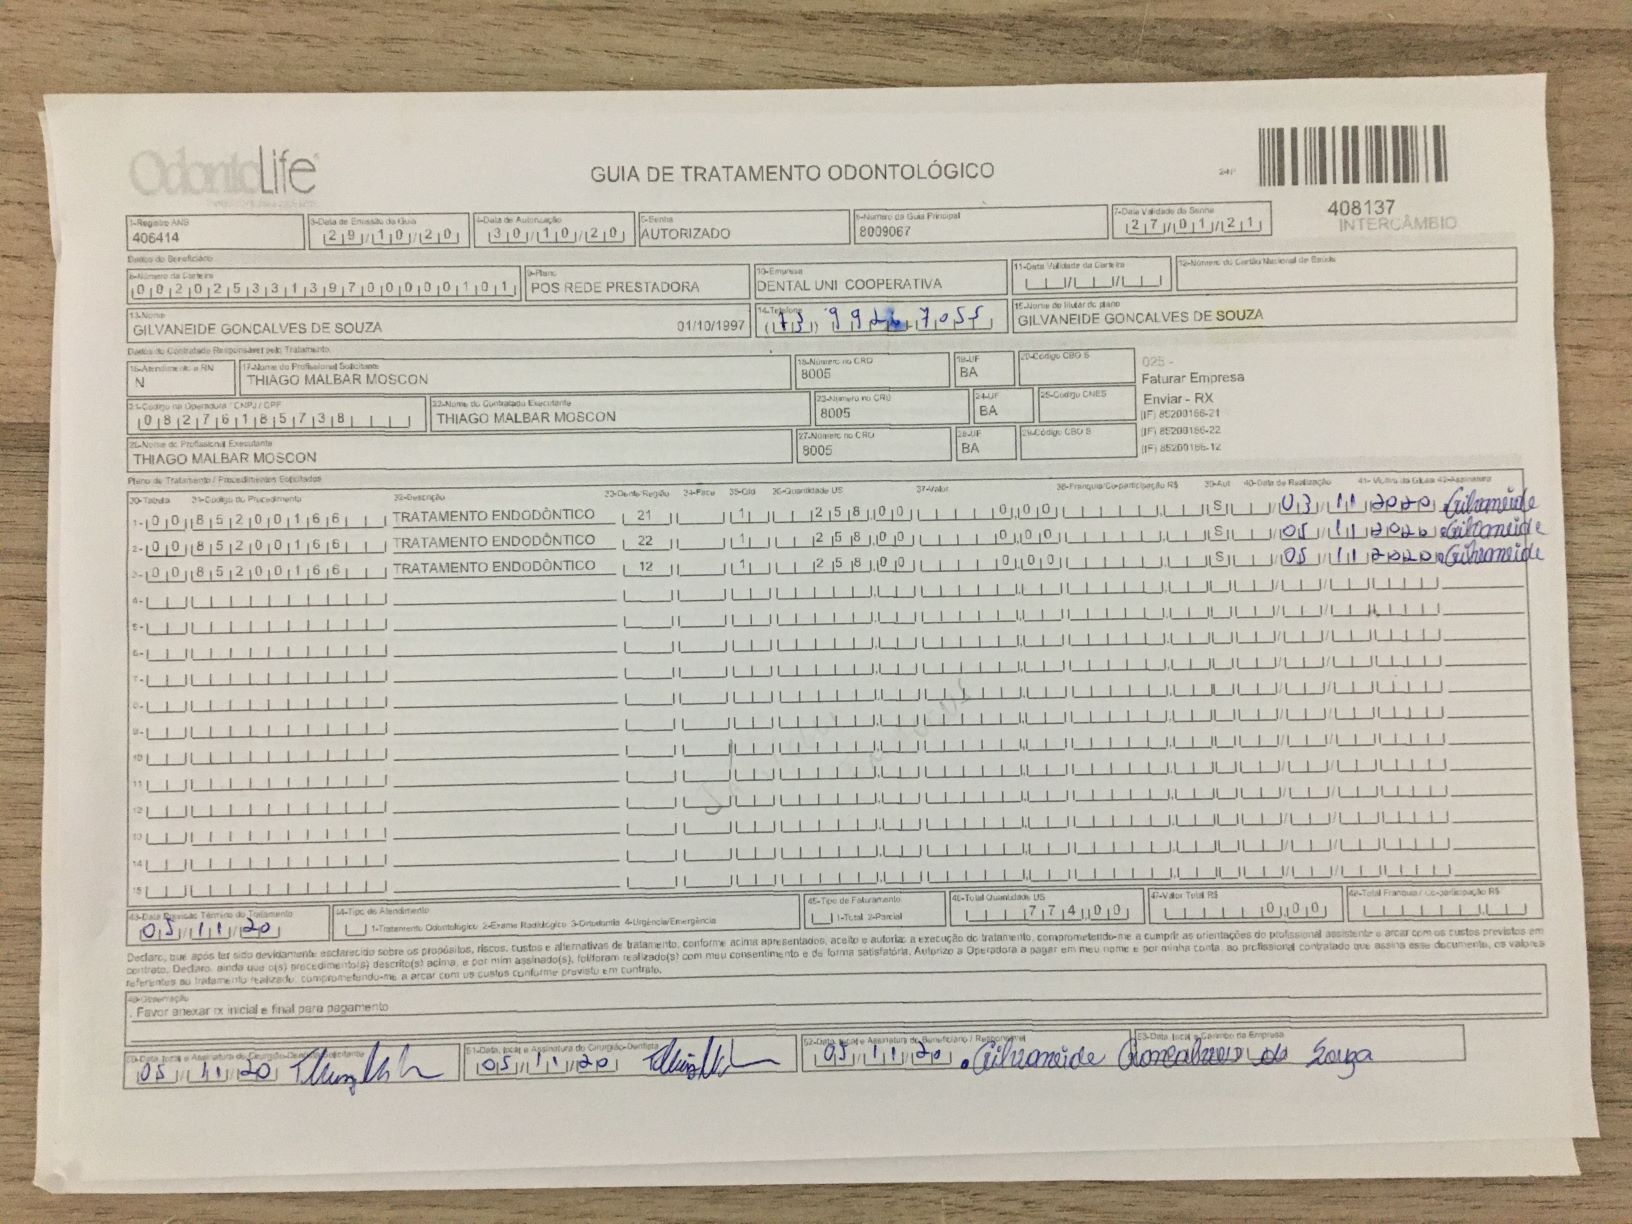 OdontoLife
GUIA DE TRATAMENTO ODONTOLÓGICO
408137
INTERCÂMBIO
1-Registro ANS
406414
3-Data de Emissão da Guia
29/10/20
4-Data de Autorização
30/10/20
5-Senha
AUTORIZADO
6-Número da Guia Principal
8009067
7-Data Validade da Senha
27/01/21
Dados do Beneficiário
8-Número da Carteira
00202533139700000101
9-Plano
POS REDE PRESTADORA
10-Empresa
DENTAL UNI COOPERATIVA
11-Data Validade da Carteira
12-Número do Cartão Nacional de Saúde
13-Nome
GILVANEIDE GONCALVES DE SOUZA 01/10/1997
14-Telefone
15-Nome do titular do plano
GILVANEIDE GONCALVES DE SOUZA
Dados do Contratado Responsável pelo Tratamento
16-Atendimento a RN
N
17-Nome do Profissional Solicitante
THIAGO MALBAR MOSCON
18-Número no CRO
8005
19-UF
BA
20-Código CBO S
025 -
Faturar Empresa
Enviar - RX
(IF) 85200166-21
(IF) 85200166-22
(IF) 85200166-12
21-Código na Operadora / CNPJ / CPF
08276185738
22-Nome do Contratado Executante
THIAGO MALBAR MOSCON
23-Número no CRO
8005
24-UF
BA
25-Código CNES
26-Nome do Profissional Executante
THIAGO MALBAR MOSCON
27-Número no CRO
8005
28-UF
BA
29-Código CBO S
Plano de Tratamento / Procedimentos Solicitados
30-Tabela 31-Código do Procedimento 32-Descrição 33-Dente/Região 34-Face 35-Qtd 36-Quantidade US 37-Valor 38-Franquia/Co-participação R$ 39-Aut 40-Data de Realização 42-Assinatura
1- 00 85200166 TRATAMENTO ENDODÔNTICO 21 1 258,00 0,00 S 03/11/2020 Gilvaneide
2- 00 85200166 TRATAMENTO ENDODÔNTICO 22 1 258,00 0,00 S 05/11/2020 Gilvaneide
3- 00 85200166 TRATAMENTO ENDODÔNTICO 12 1 258,00 0,00 S 05/11/2020 Gilvaneide
4-
5-
6-
7-
8-
9-
10
11
12
13
14
15
43-Data Previsão Término do Tratamento
05/11/20
44-Tipo de Atendimento
1-Tratamento Odontológico 2-Exame Radiológico 3-Ortodontia 4-Urgência/Emergência
45-Tipo de Faturamento
1-Total 2-Parcial
46-Total Quantidade US
774,00
47-Valor Total R$
0,00
48-Total Franquia / Co-participação R$
Declaro, que após ter sido devidamente esclarecido sobre os propósitos, riscos, custos e alternativas de tratamento, conforme acima apresentados, aceito e autorizo a execução do tratamento, comprometendo-me a cumprir as orientações do profissional assistente e arcar com os custos previstos em
contrato. Declaro, ainda que o(s) procedimento(s) descrito(s) acima, e por mim assinado(s), foi/foram realizado(s) com meu consentimento e de forma satisfatória. Autorizo a Operadora a pagar em meu nome e por minha conta, ao profissional contratado que assina esse documento, os valores
referentes ao tratamento realizado, comprometendo-me a arcar com os custos conforme previsto em contrato.
49-Observação
. Favor anexar rx inicial e final para pagamento
50-Data, local e Assinatura do Cirurgião-Dentista Solicitante
05/11/20
51-Data, local e Assinatura do Cirurgião-Dentista
05/11/20
52-Data, local e Assinatura do Beneficiário / Responsável
05/11/20 Gilvaneide Goncalves de Souza
53-Data, local e Carimbo da Empresa